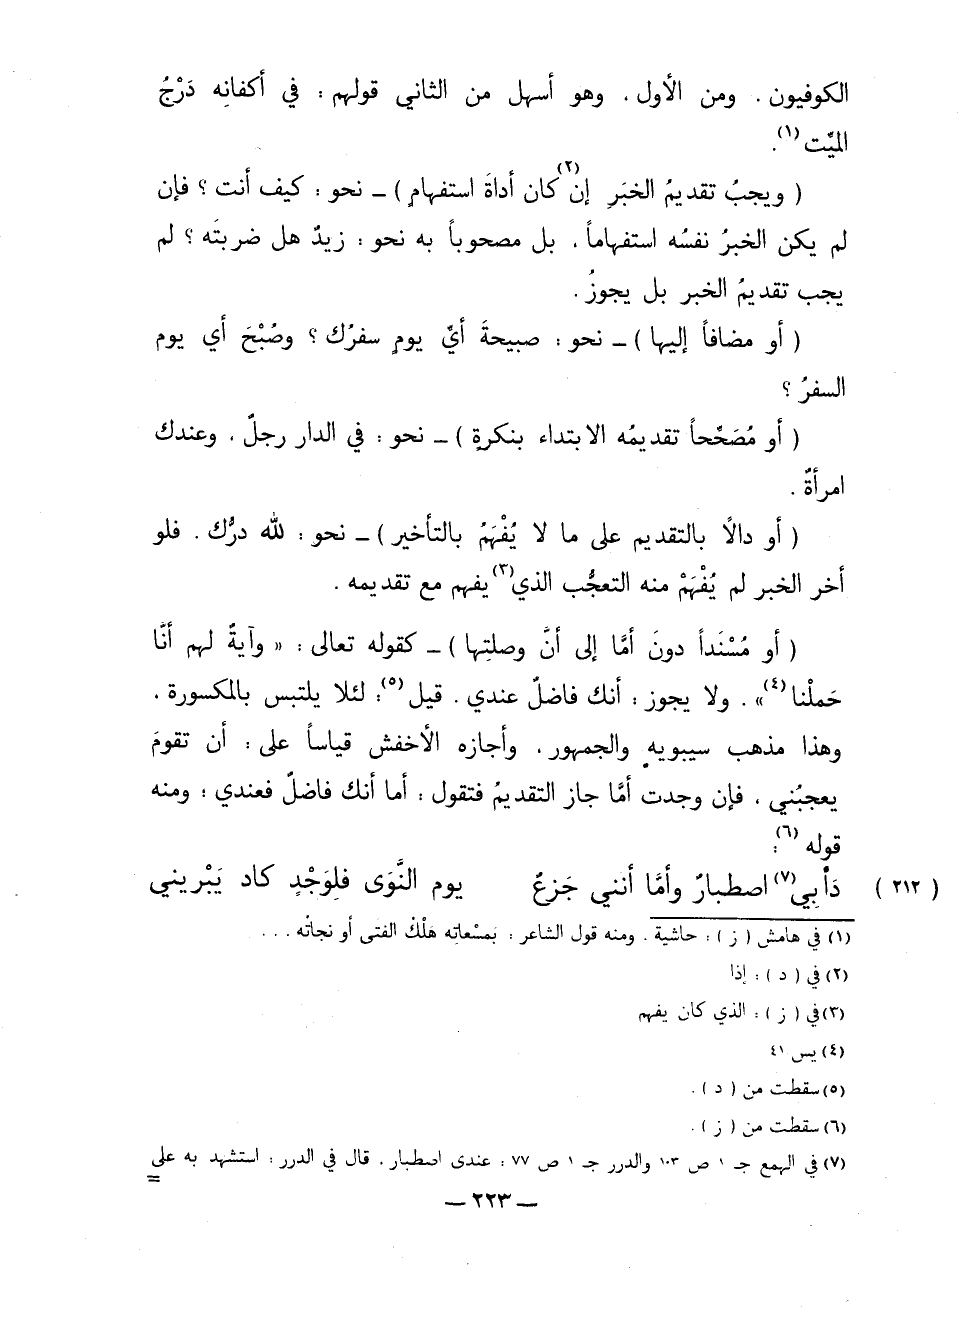 الكوفيون . ومن الأول ، وهو أسهل من الثاني قولهم : في أكفانِه دَرْجُ
الميِّت (١).
( ويجبُ تقديمُ الخبَرِ إن (٢) كان أداةَ استفهامٍ ) ــ نحو : كيف أنت ؟ فإن
لم يكن الخبرُ نفسُه استفهاماً ، بل مصحوباً به نحو : زيدٌ هل ضربتَه ؟ لم
يجب تقديمُ الخبر بل يجوزُ .
( أو مضافاً إليها ) ــ نحو : صبيحةَ أيِّ يومٍ سفرُك ؟ وصُبْحَ أي يوم
السفرُ ؟
( أو مُصَحِّحاً تقديمُه الابتداء بنكرةٍ ) ــ نحو : في الدار رجلٌ ، وعندك
امرأةٌ .
( أو دالًا بالتقديم على ما لا يُفْهَمُ بالتأخير ) ــ نحو : لله درُّك . فلو
أخر الخبر لم يُفْهَمْ منه التعجُّب الذي (٣) يفهم مع تقديمه .
( أو مُسْنَداً دونَ أمَّا إلى أنَّ وصلتِها ) ــ كقوله تعالى : « وآيةٌ لهم أنَّا
حَملْنا (٤) » . ولا يجوز : أنك فاضلٌ عندي . قيل (٥) : لئلا يلتبس بالمكسورة ،
وهذا مذهب سيبويهِ والجمهور ، وأجازه الأخفش قياساً على : أن تقومَ
يعجبُني ، فإن وجدت أمَّا جاز التقديمُ فتقول : أما أنك فاضلٌ فعندي ؛ ومنه
قوله (٦) :
( ٢١٢ ) دَأبِي (٧) اصطبارٌ وأمَّا أنني جَزعٌ يوم النَّوَى فلِوَجْدٍ كاد يَبْريني
(١) في هامش ( ز ) : حاشية . ومنه قول الشاعر : بمسْعاته هَلْكُ الفتى أو نجاتُه . . .
(٢) في ( د ) : إذا
(٣) في ( ز ) : الذي كان يفهم
(٤) يس ٤١
(٥) سقطت من ( د ) .
(٦) سقطت من ( ز ) .
(٧) في الهمع جـ ١ ص ١٠٣ والدرر جـ ١ ص ٧٧ : عندى اصطبار . قال في الدرر : استشهد به على
=
ــ ٢٢٣ ــ